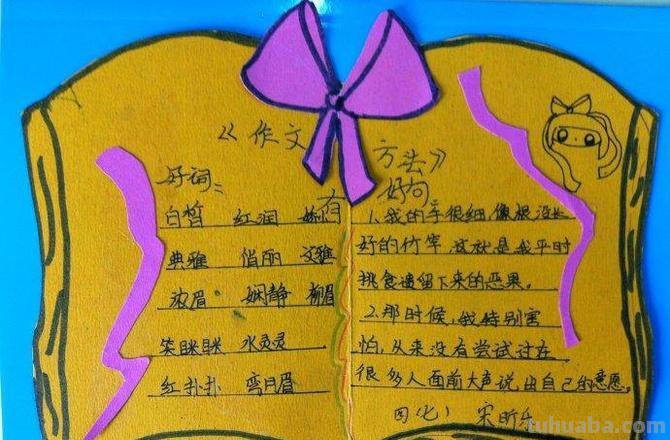 《作文有方法》
好词:
白皙 红润
典雅 俏丽 文雅
浓眉 娴静 柳眉
笑眯眯 水灵灵
红扑扑 弯月眉
好句
1.我的手很细,像根没长
好的竹竿,这就是我平时
挑食遗留下来的恶果。
2.那时候,我特别害
怕,从来没有尝试过在
很多人面前大声说出自己的意愿。
四(七) 宋昕
tuhuaba.com